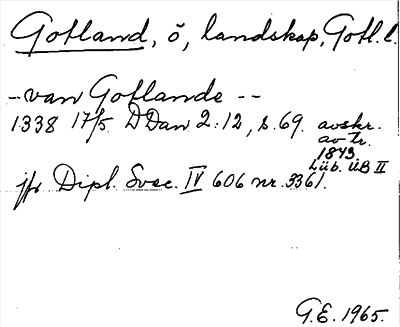 Gotland, ö, landskap, Gotl. l.
-- van Gotlande --
1338 17/5. DDan 2:12, s. 69. avskr.
av tr.
1843
Lüb. UB II
jfr Dipl. Svec. IV 606 nr. 3361.
G.E. 1965.